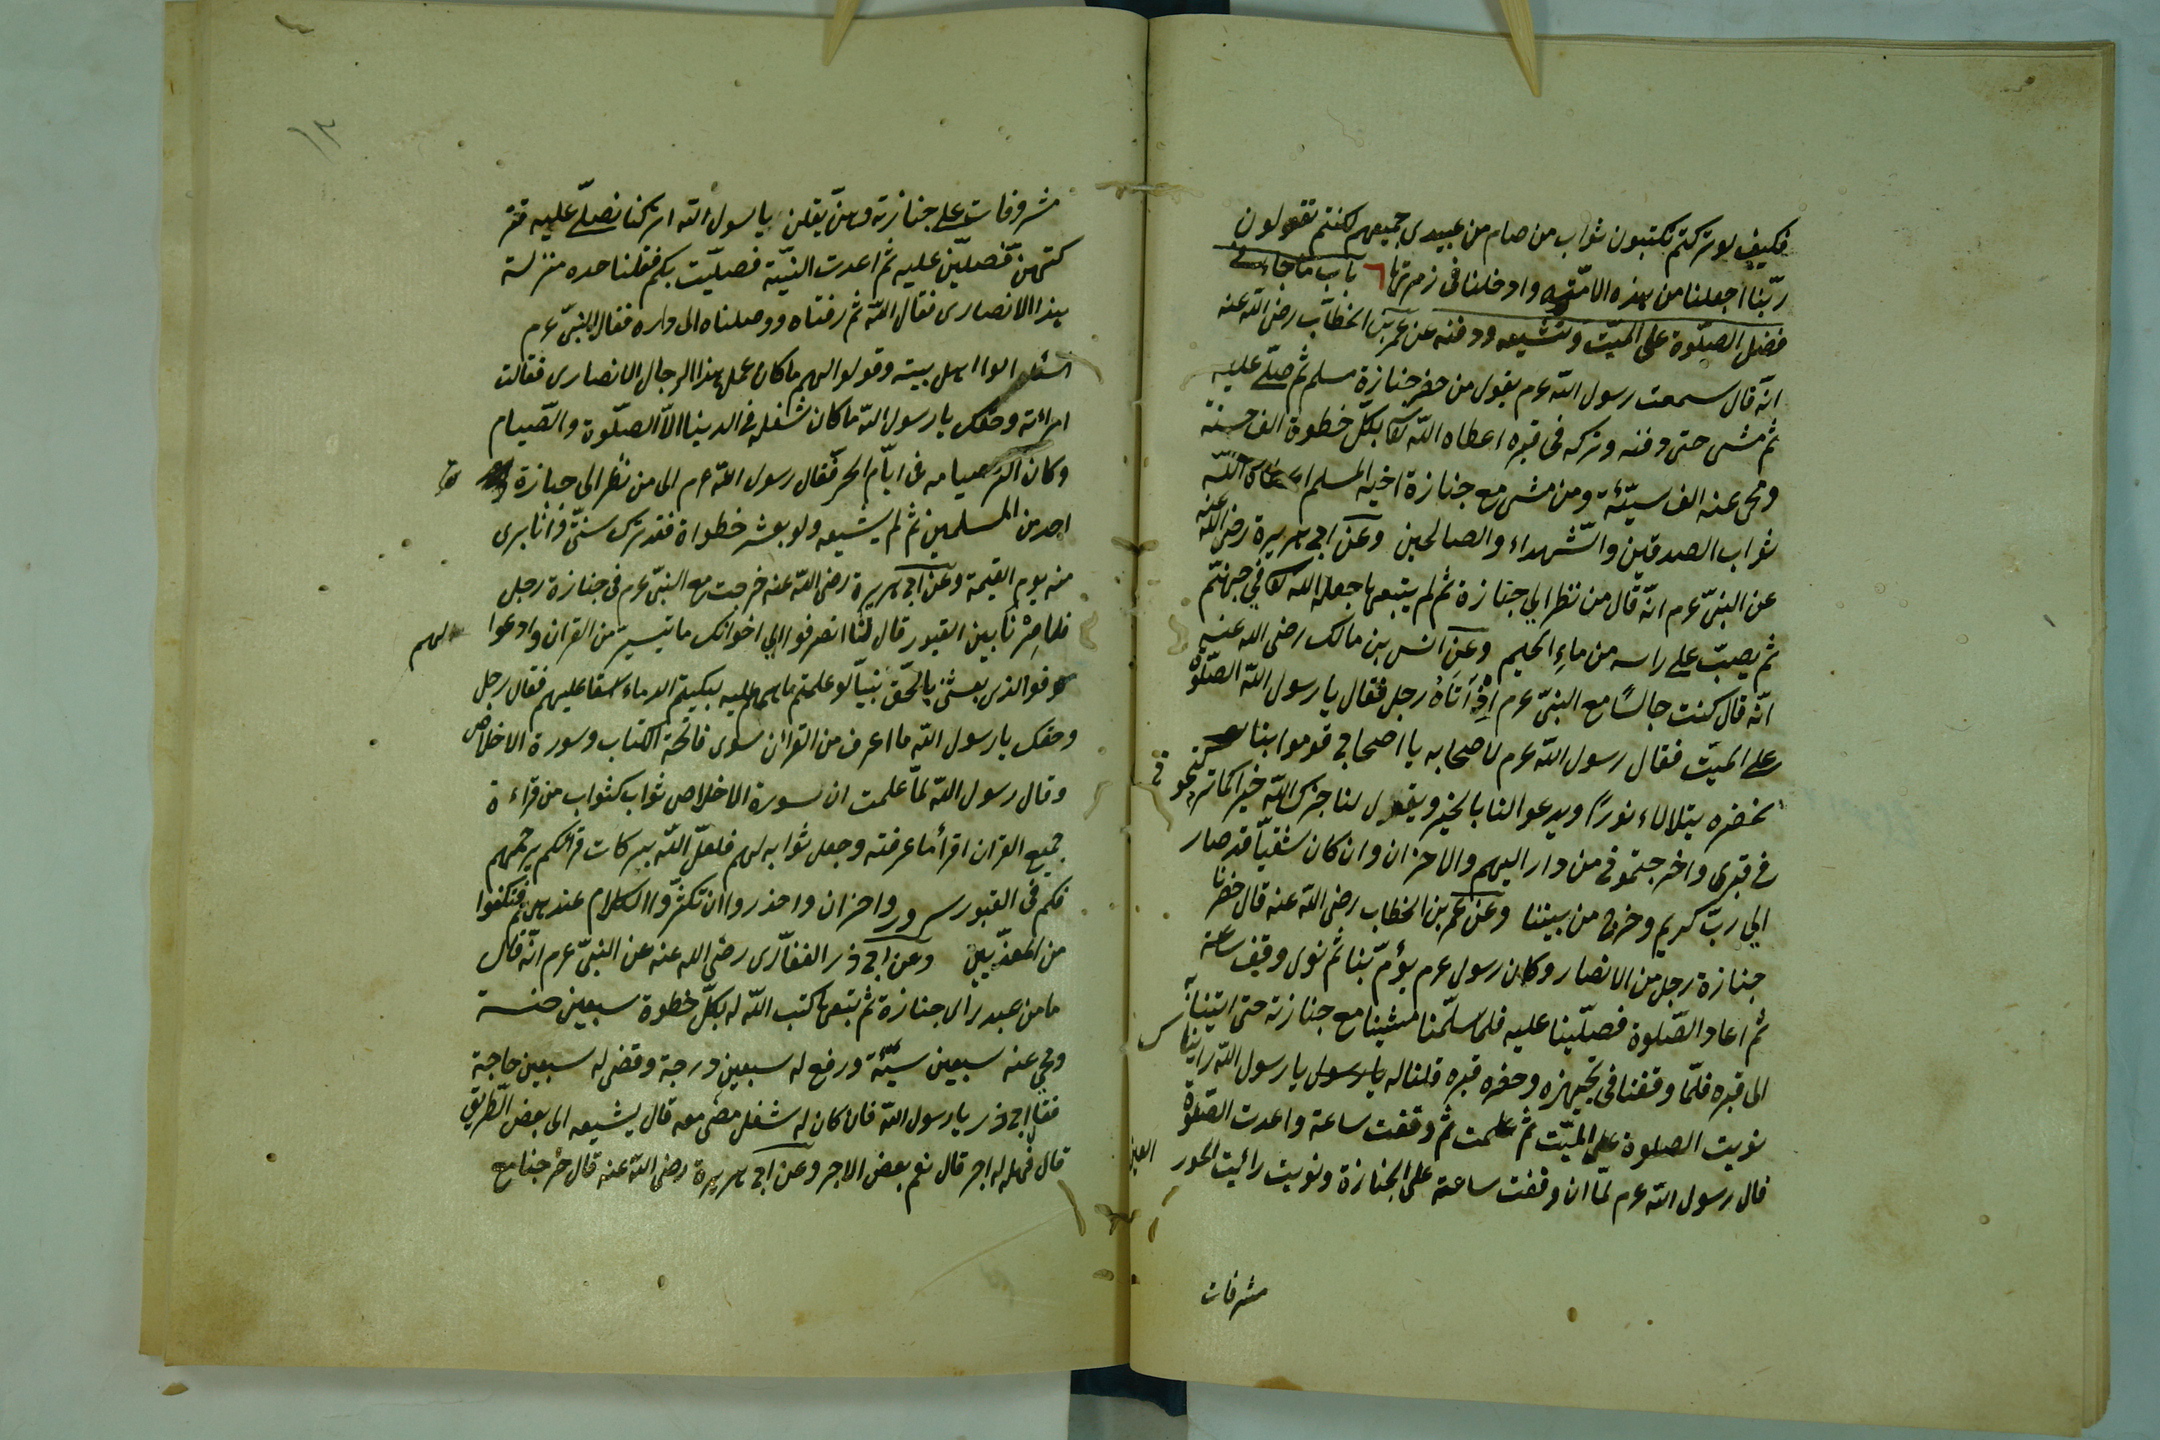 فكيف لو تركتم تكتبون ثواب من صام من عبيدى جميعهم لكنتم تقولون
ربّنا اجعلنا من هذه الامّة وادخلنا فى زمرتها باب ما جاء فى
فضل الصلّوة على الميّت وتشيعه ودفنه عن عمر بن الخطّاب رضى الله عنه
انّه قال سمعت رسول الله عم يقول من حضر جنازة مسلم ثم صلّى عليه
ثم مشى حتى دفنه وتركه فى قبره اعطاه الله تعا بكلّ خطوة الف حسنة
ومحى عنه الف سيّئة ومن مشى مع جنازة اخيه المسلم اعطاه الله
ثواب الصدقين والشّهداء والصالحين وعن ابى هريرة رضى الله عنه
عن النبىّ عم انّه قال من نظر الى جنازة ثم لم يتبعها جعله الله تعا فى جهنّم
ثم يصبّ على راسه من ماءِ الحميم وعن انس بن مالك رضى الله عنه
انّه قال كنت جالسًا مع النبىّ عم اِذْ اَتَاهُ رجل فقال يا رسول الله الصّلوة
على الميّت فقال رسول الله عم لاصحابه يا اصحابى قوموا بنا
نحضره يتلالاء نورًا ويدعوا لنا بالخير ويقول لنا جزاك الله خيرا كما تركتمونى
فى قبرى واخرجتمونى من دار الهم والاحزان وان كان شقيّا قد صار
الى ربّ كريم وخرج من بيننا وعن عمر بن الخطاب رضى الله عنه قال حضرنا
جنازة رجل من الانصار وكان رسول عم يؤمّ بنا ثم نوى وقيف ساعة
ثم اعاد الصّلوة فصلّينا عليه فلما سلّمنا مشينا مع جنازته حتى اتينا
الى قبره فلمّا وقفنا فى تجهيزه وحفره قبره قلنا له يا رسول يا رسول الله رايناك
نويت الصلوة على الميّت ثم علمت ثم وقفت ساعة واعدت الصّلوة
قال رسول الله عم لمّا ان وقفت ساعة على الجنازة ونويت رائيت الحور العين
مشرفات
١٣
مشروفات على جنازته وهنّ يقلن يا رسول الله اتركنا نصلّى عليه
فصلّين عليه ثم اعدت النيّة فصلّيت بكم فقلنا هذه منزلة
هذا الانصارى فقال الله ثم رفناه ووصلناه الى داره فقال النبىّ عم
اسئلوا اهل بيته وقولوا لهم ما كان عمل هذا الرجال الانصارى فقالت
امرائته وحقك يا رسول الله ما كان شغله فى الدينا الاّ الصلّوة والصّيام
وكان اكثر صيامه فى ايّام الحر فقال رسول الله عم الى من نظر الى جنازة
احد من المسلمين ثم لم يشيعه ولو بعشر خطواة فقد ترك سنّتى وانا برى
منه يوم القيمة وعن ابى هريرة رضى الله عنه خرجت مع النبىّ عم فى جنازة رجل
فلما صِرْنا بين القبور قال لنا انصرفوا الى اخوانك ما تيسير من القران وادعوا لهم
فوالذى بعثنى بالحقّ نبيّا لو علمتم ما هم عليه لبكيتم الدماء اسفا عليهم فقال رجل
وحقك يا رسول الله ما اعرف من القرآن سوى فاتحة الكتاب وسورة الاخلاص
وقال رسول الله لمّا علمت ان سورة الاخلاص ثواب كثواب من قراءة
جميع القران اقرأ ما عرفته وجعل ثوابه لهم فلعلّ الله ببركات قرائكم يرحمهم
فكم فى القبور سرور واحزان واحذروا ان تكثروا الكلام عندهن
من المعذّبين وعن ابى ذر الغفارى رضى الله عنه عن النبىّ عم انّه قال
ما من عبد راى جنازة ثم تبعها كتب الله له بكلّ خطوة سبعين حسنة
ومحى عنه سبعين سيّئة ورفع له سبعين درجة وقضى له سبعين حاجة
فقا ابى ذر يا رسول الله فان كان له شغل مضى معه قال يشيعه الى بعض الطّريق
قال فهل له اجر قال نعم بعض الاجر وعن ابى هريرة رضى الله عنه قال خرجنا مع